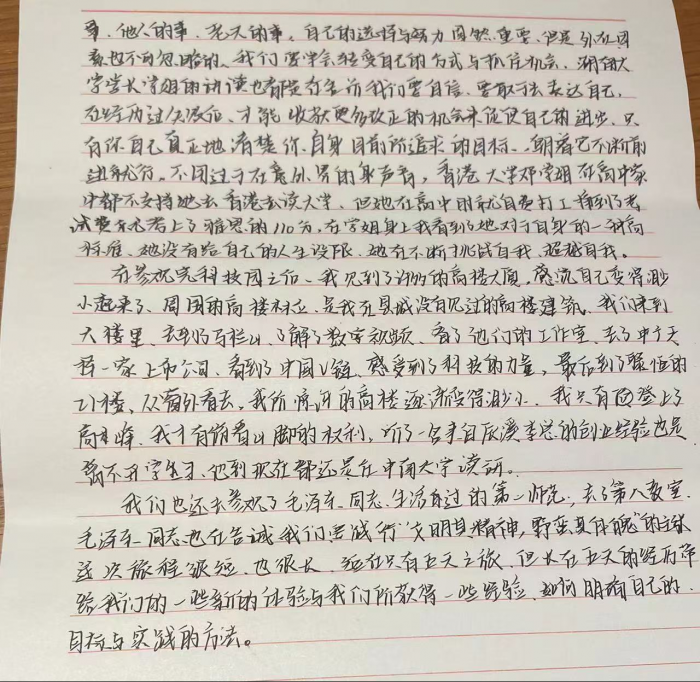 事、他人的事、老天的事。自己的选择与努力固然重要,但是外在因
素也不可忽略的、我们要学会转变自己的方式与抓住机会,湖南大
学学长学姐的讲演也都是告诉我们要自信、要敢于去表达自己,
在经历过失误后、才能收获更多改正的机会来促使自己的进步、只
有你自己真正地清楚你自身目前所追求的目标、朝着它不断前
进就行。不因过于在意外界的声音,香港大学邓学姐在高中家
中都不支持她去香港去读大学、但她在高中的就自费打工挣到了考
试费,考上了雅思的110分,在学姐身上我看到了她对于自身的一种高
标准、她没有给自己的人生设限、她在不断挑战自我、超越自我。
在参观完科技园之后、我见到了许多的高楼大厦,感觉自己变得渺
小起来了、周围的高楼林立、是我在县城没有见过的高楼建筑、我们来到
大楼里、去到了马栏山、了解了数字视频、看了他们的工作室、去了中
一家上市公司、看到了中国V链、感受到了科技的力量,最后到了
21楼、从窗外看去,我所得见的高楼逐渐变得渺小、我只有同登上了
高峰、我才有俯看山脚的权利,听了一名来自辰溪李总的创业经验也是
离不开学生、他到现在都还是在中南大学读研。
我们也还去参观了毛泽东同志生活有过的第一师范,去了第八教室、
毛泽东同志也在告诫我们要践行“文明其精神,野蛮其体魄”的
这次旅程很短、也很长、短在只有五天之旅、但长在五天的经历带
给我们的一些新的体验与我们所获得一些经验、如何明确自己的
目标与实践的方法。